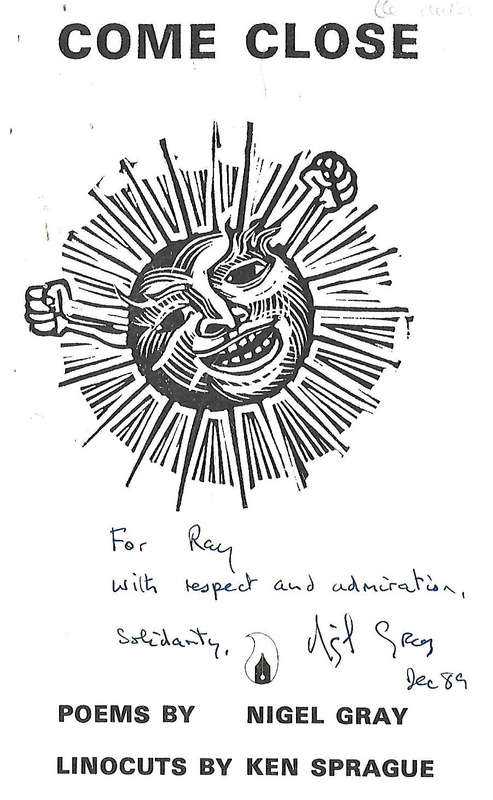 COME CLOSE
For Ray
with respect and admiration,
Solidarity,
Nigel Gray
Dec 89
POEMS BY NIGEL GRAY
LINOCUTS BY KEN SPRAGUE